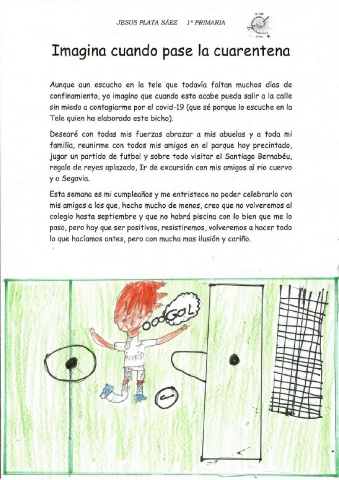 JESUS PLATA SÁEZ 1º PRIMARIA
Imagina cuando pase la cuarentena
Aunque aun escucho en la tele que todavía faltan muchos días de
confinamiento, yo imagino que cuando esto acabe pueda salir a la calle
sin miedo a contagiarme por el covid-19 (que sé porque lo escuche en la
Tele quien ha elaborado este bicho).
Desearé con todas mis fuerzas abrazar a mis abuelas y a toda mi
familia, reunirme con todos mis amigos en el parque hoy precintado,
jugar un partido de futbol y sobre todo visitar el Santiago Bernabéu,
regalo de reyes aplazado, Ir de excursión con mis amigos al rio cuervo
y a Segovia.
Esta semana es mi cumpleaños y me entristece no poder celebrarlo con
mis amigos a los que, hecho mucho de menos, creo que no volveremos al
colegio hasta septiembre y que no habrá piscina con lo bien que me lo
paso, pero hay que ser positivos, resistiremos, volveremos a hacer todo
lo que hacíamos antes, pero con mucha mas ilusión y cariño.
GOL